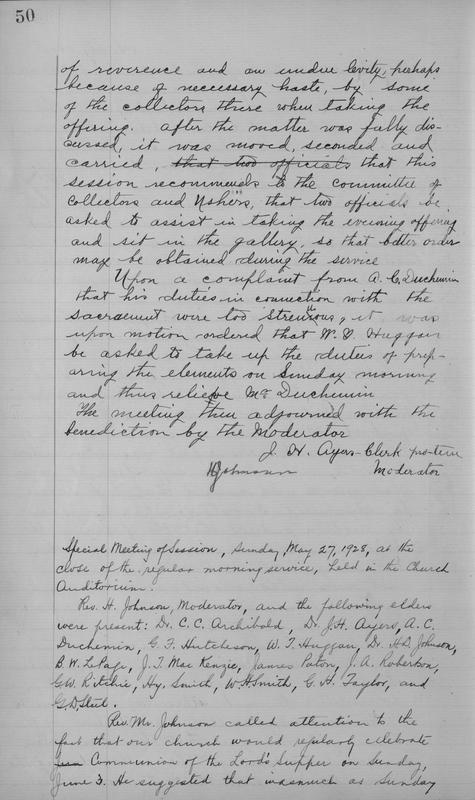 50
of reverence and an undue levity, perhaps
because of necessary haste, by some
of the collectors there when taking the
offering. After the matter was fully dis-
cussed, it was moved, seconded and
carried, that two officials that this
session recommends to the committee of
Collectors and Ushers, that two officials be
asked to assist in taking the evening offering
and sit in the gallery, so that better order
may be obtained during the service
Upon a complaint from A. C. Duchemin
that his duties in connection with the
sacrament were too strenuous, it was
upon motion ordered that W. T. Huggan
be asked to take up the duties of prep-
aring the elements on Sunday morning
and thus relieve Mr Duchemin
The meeting then adjourned with the
benediction by the Moderator
J. H. Ayers - Clerk pro-tem
Johnson Moderator
Special Meeting of Session, Sunday, May 27, 1928, at the
close of the regular morning service, held in the Church
Auditorium.
Rev. H. Johnson, Moderator, and the following elders
were present: Dr. C. C. Archibald, Dr. J. H. Ayers, A. C.
Duchemin, G. F. Hutcheson, W. T. Huggan, Dr. H. D. Johnson,
B. W. LePage, J. T. MacKenzie, James Paton, J. A. Robertson,
G. W. Ritchie, Hy. Smith, W. H. Smith, G. H. Taylor, and
G. D.
Rev. Mr. Johnson called attention to the
fact that our church would regularly celebrate
Communion of the Lord's Supper on Sunday,
June 3. He suggested that inasmuch as Sunday